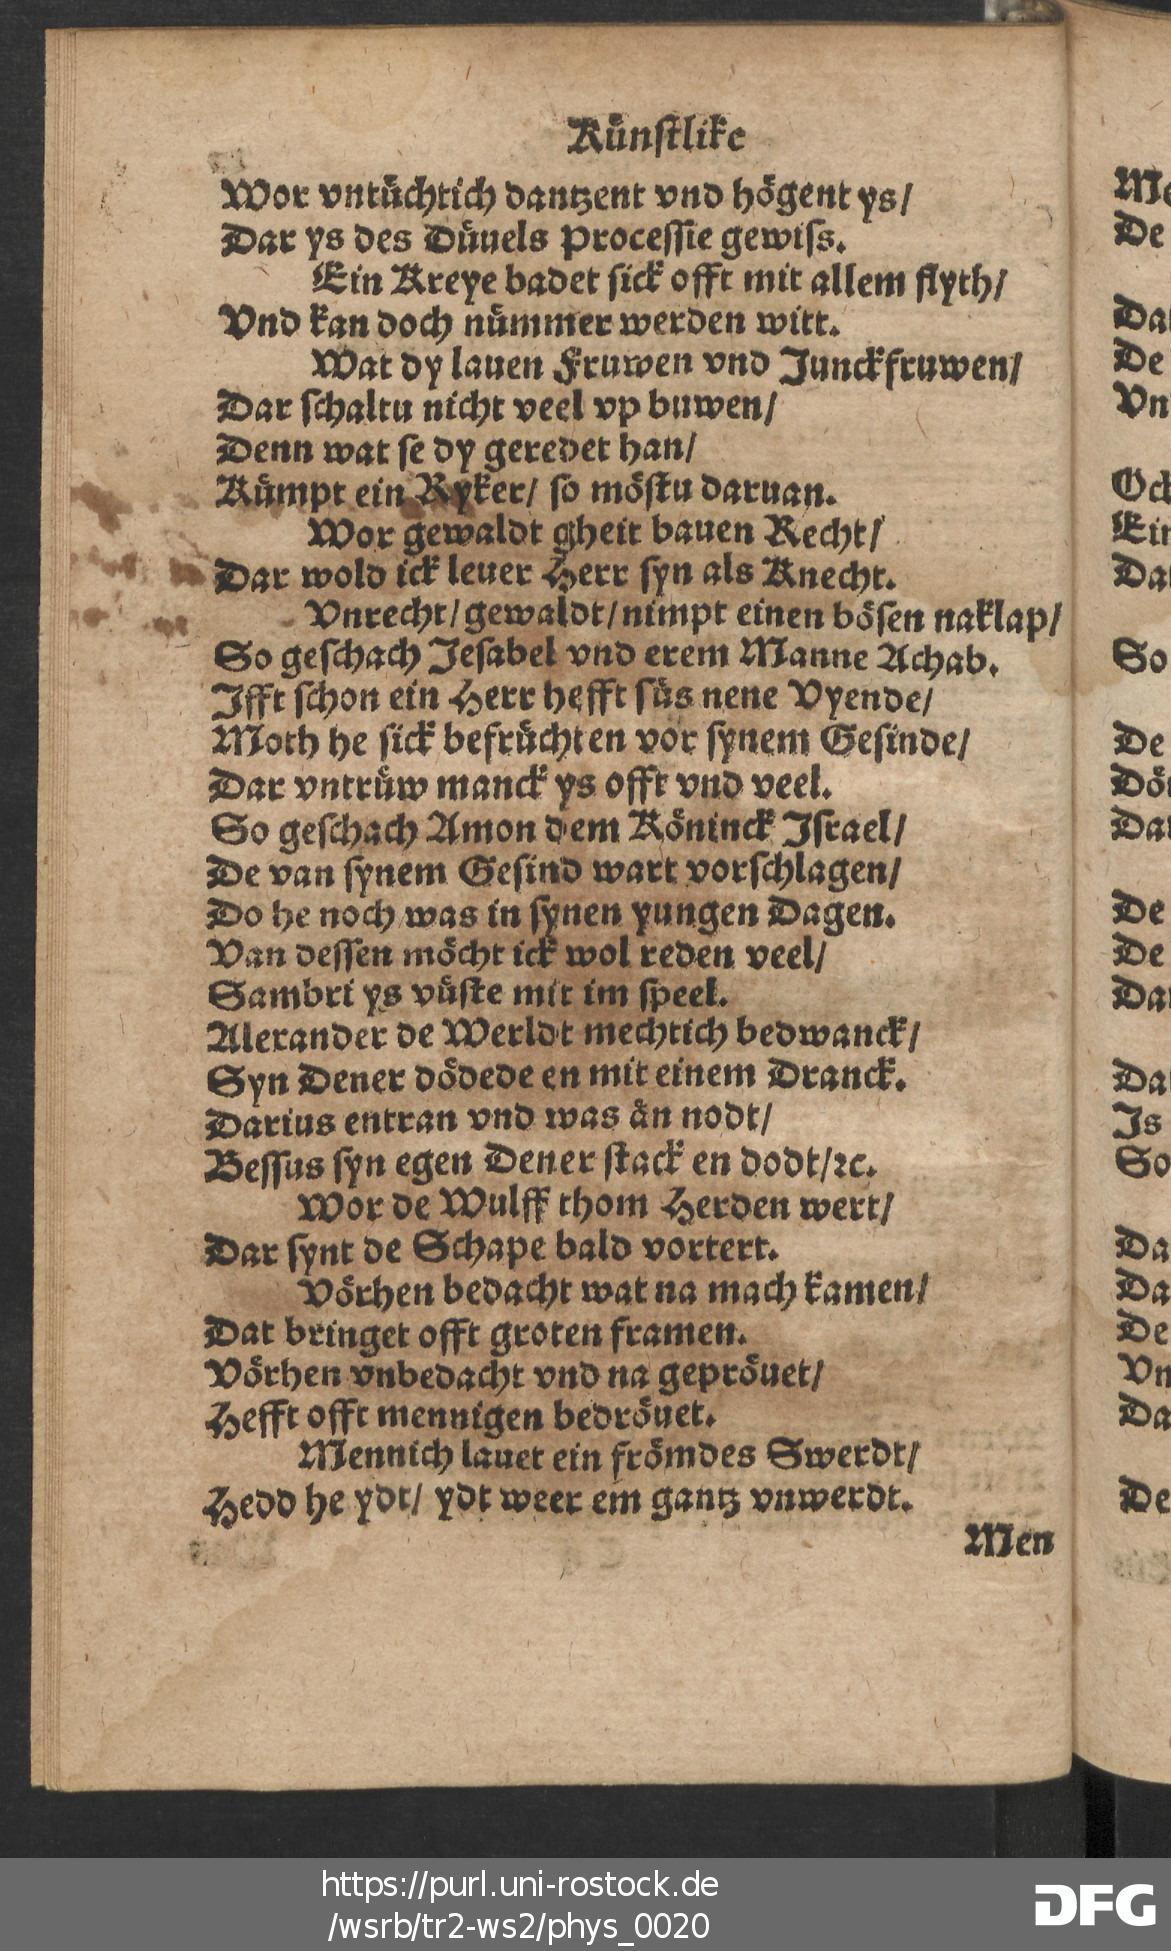 Künstlike
Wor vntüchtich dantzent vnd högent ys/
Dar ys des Düuels Processie gewiss.
Ein Kreye badet sick offt mit allem flyth/
Vnd kan doch nümmer werden witt.
Wat dy lauen Fruwen vnd Junckfruwen/
Dar schaltu nicht veel vp buwen/
Denn wat se dy geredet han/
Kümpt ein Ryker/ so möstu daruan.
Wor gewaldt gheit bauen Recht/
Dar wold ick leuer Herr syn als Knecht.
Vnrecht/ gewaldt/ nimpt einen bösen naklap/
So geschach Jesabel vnd erem Manne Achab.
Jfft schon ein Herr hefft süs nene Vyende/
Moth he sick befrüchten vor synem Gesinde/
Dar vntrüw manck ys offt vnd veel.
So geschach Amon dem Köninck Israel/
De van synem Gesind wart vorschlagen/
Do he noch was in synen yungen Dagen.
Van dessen möcht ick wol reden veel/
Sambri ys vüste mit im speel.
Alexander de Werldt mechtich bedwanck/
Syn Dener dödede en mit einem Dranck.
Darius entran vnd was än nodt/
Bessus syn egen Dener stack en dodt/ꝛc.
Wor de Wulff thom Herden wert/
Dar synt de Schape bald vortert.
Vörhen bedacht wat na mach kamen/
Dat bringet offt groten framen.
Vörhen vnbedacht vnd na gepröuet/
Hefft offt mennigen bedröuet.
Mennich lauet ein frömdes Swerdt/
Hedd he ydt/ ydt weer em gantz vnwerdt.
Men
De
De
Vn
So
De
De
De
Da
So
Da
Da
De
Vn
Da
De
https://purl.uni-rostock.de
/wsrb/tr2-ws2/phys_0020
DFG